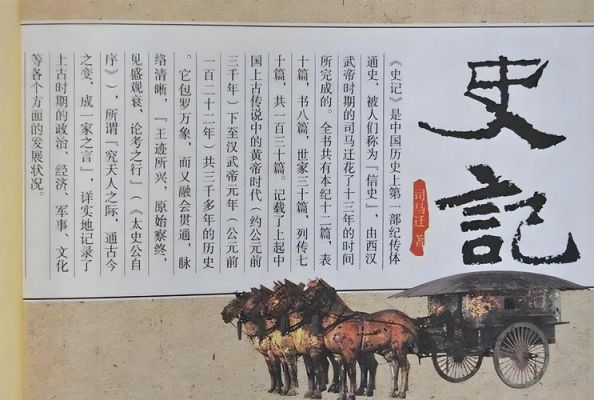 史記
司马迁 著
《史记》是中国历史上第一部纪传体
通史，被人们称为「信史」，由西汉
武帝时期的司马迁花了十三年的时间
所完成的。全书共有本纪十二篇，表
十篇，书八篇，世家三十篇，列传七
十篇，共一百三十篇。记载了上起中
国上古传说中的黄帝时代（约公元前
三千年）下至汉武帝元年（公元前
一百二十二年）共三千多年的历史
。它包罗万象，而又融会贯通，脉
络清晰，「王迹所兴，原始察终，
见盛观衰，论考之行」（《太史公自
序》），所谓「究天人之际，通古今
之变，成一家之言」，详实地记录了
上古时期的政治、经济、军事、文化
等各个方面的发展状况。